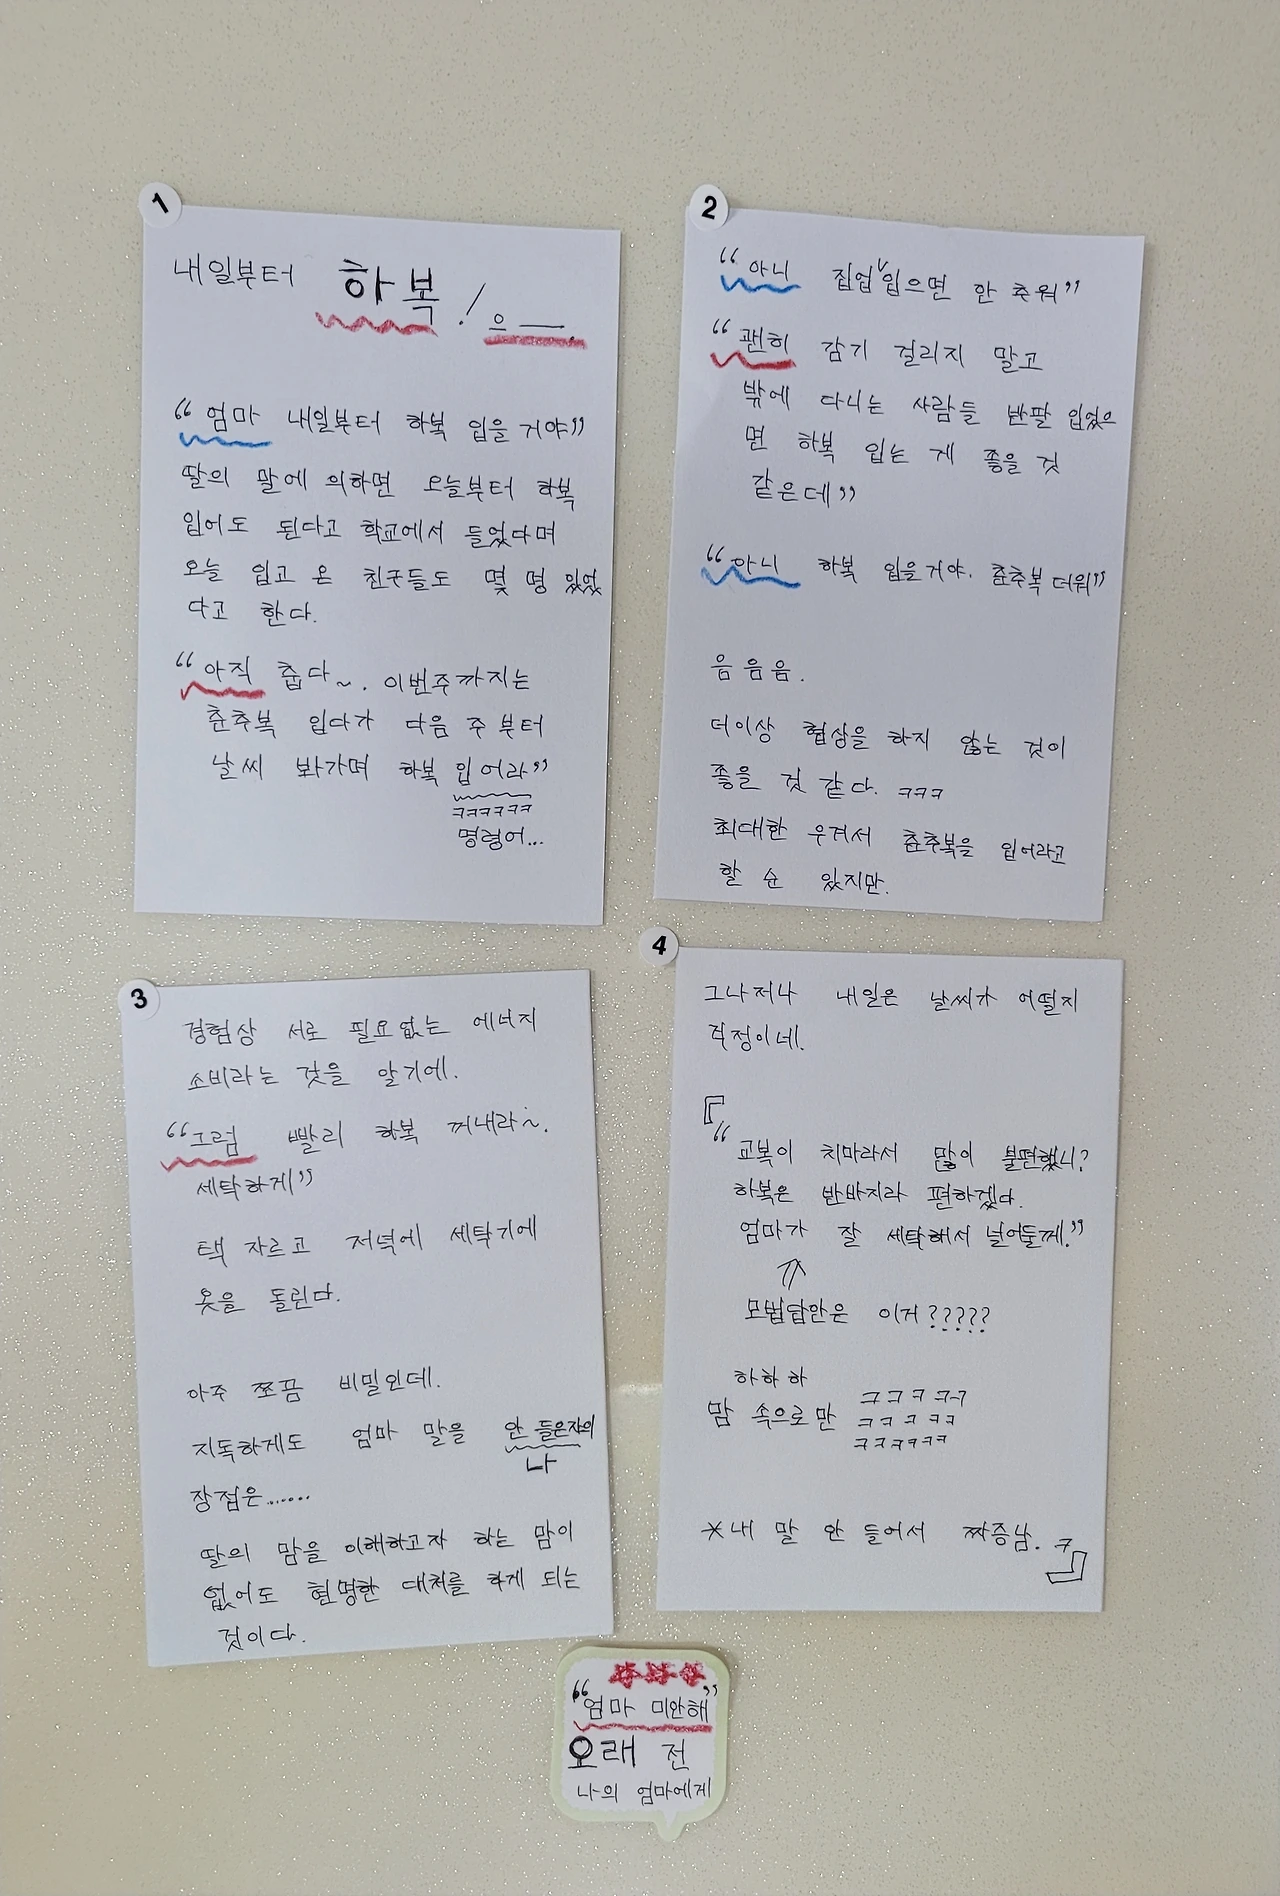 1
내일부터 하복! 으 ―.
“엄마 내일부터 하복 입을거야”
딸의 말에 의하면 오늘부터 하복
입어도 된다고 학교에서 들었다며
오늘 입고 온 친구들도 몇 명 있었
다고 한다.
“아직 춥다~. 이번주까지는
춘추복 입다가 다음 주부터
날씨 봐가며 하복 입어라”
ㅋㅋㅋㅋㅋㅋ
명령어...
2
“아니 집업 입으면 안 추워”
“괜히 감기 걸리지 말고
밖에 다니는 사람들 반팔 입었으
면 하복 입는 게 좋을 것
같은데”
“아니 하복 입을거야. 춘추복 더워”
음 음 음.
더이상 협상을 하지 않는 것이
좋을 것 같다. ㅋㅋㅋ
최대한 우겨서 춘추복을 입어라고
할 순 있지만.
3
경험상 서로 필요없는 에너지
소비라는 것을 알기에.
“그럼 빨리 하복 꺼내라~.
세탁하게”
택 자르고 저녁에 세탁기에
옷을 돌린다.
아주 쪼끔 비밀인데.
지독하게도 엄마 말을 안 들은자의
나
장점은.......
딸의 맘을 이해하고자 하는 맘이
없어도 현명한 대처를 하게 되는
것이다.
4
그나저나 내일은 날씨가 어떨지
걱정이네.
『
“교복이 치마라서 많이 불편했니?
하복은 반바지라 편하겠다.
엄마가 잘 세탁해서 널어둘께.”
⇑
모범답안은 이거?????
하하하
맘 속으로만 ㅋㅋㅋㅋㅋ
ㅋㅋㅋㅋㅋ
ㅋㅋㅋㅋㅋㅋ
*내 말 안 들어서 짜증남. ㅋ
』
“엄마 미안해”
오래 전
나의 엄마에게